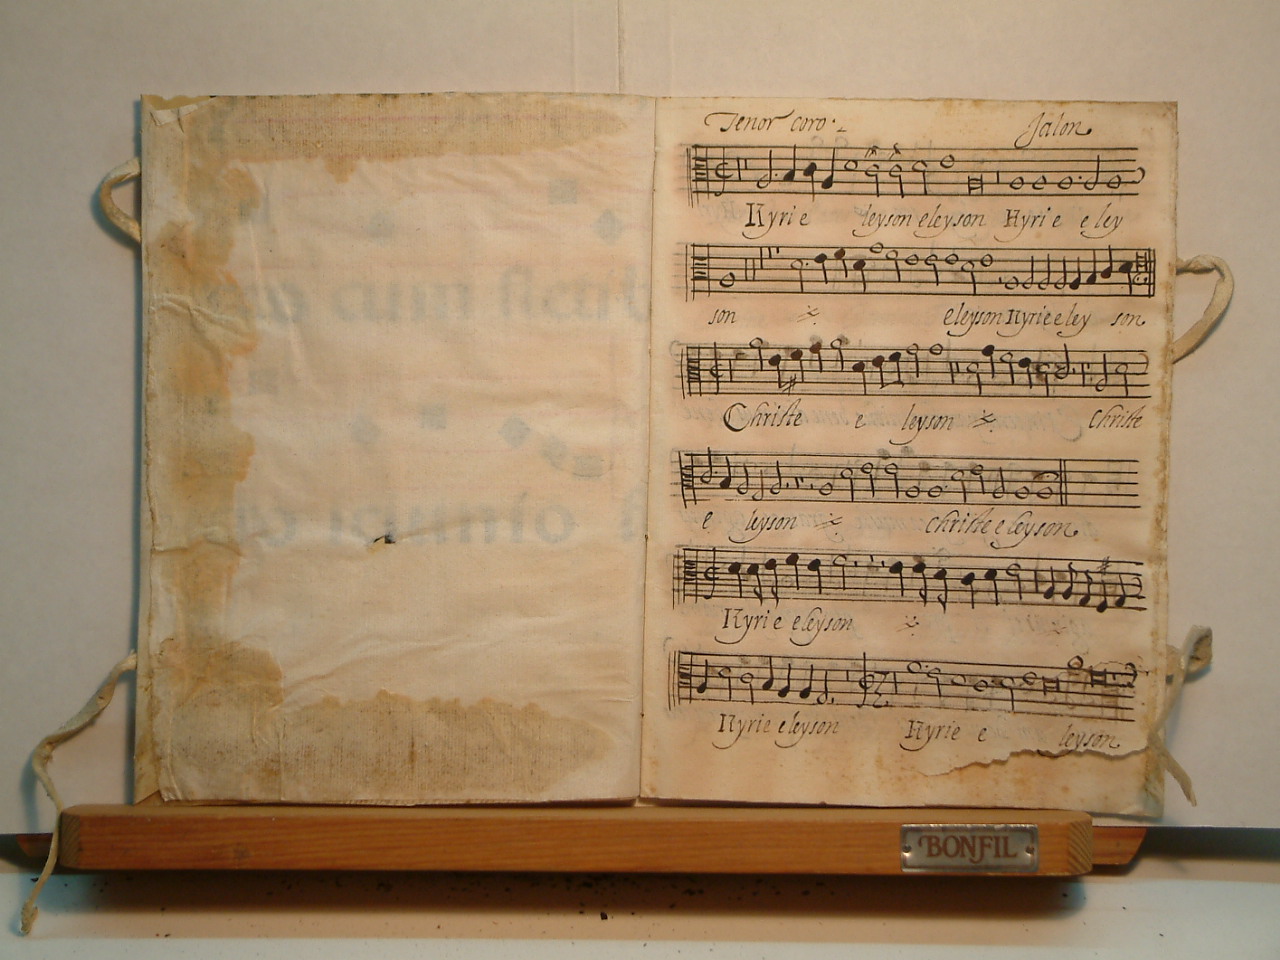 Tenor coro. 2 Jalon
Kyrie leyson eleyson Kyrie e ley
son eleyson Kyrie eley son
Christe e leyson Christe
e leyson christe eleyson
Kyrie eleyson
Kyrie eleyson Kyrie e leyson
BONFIL